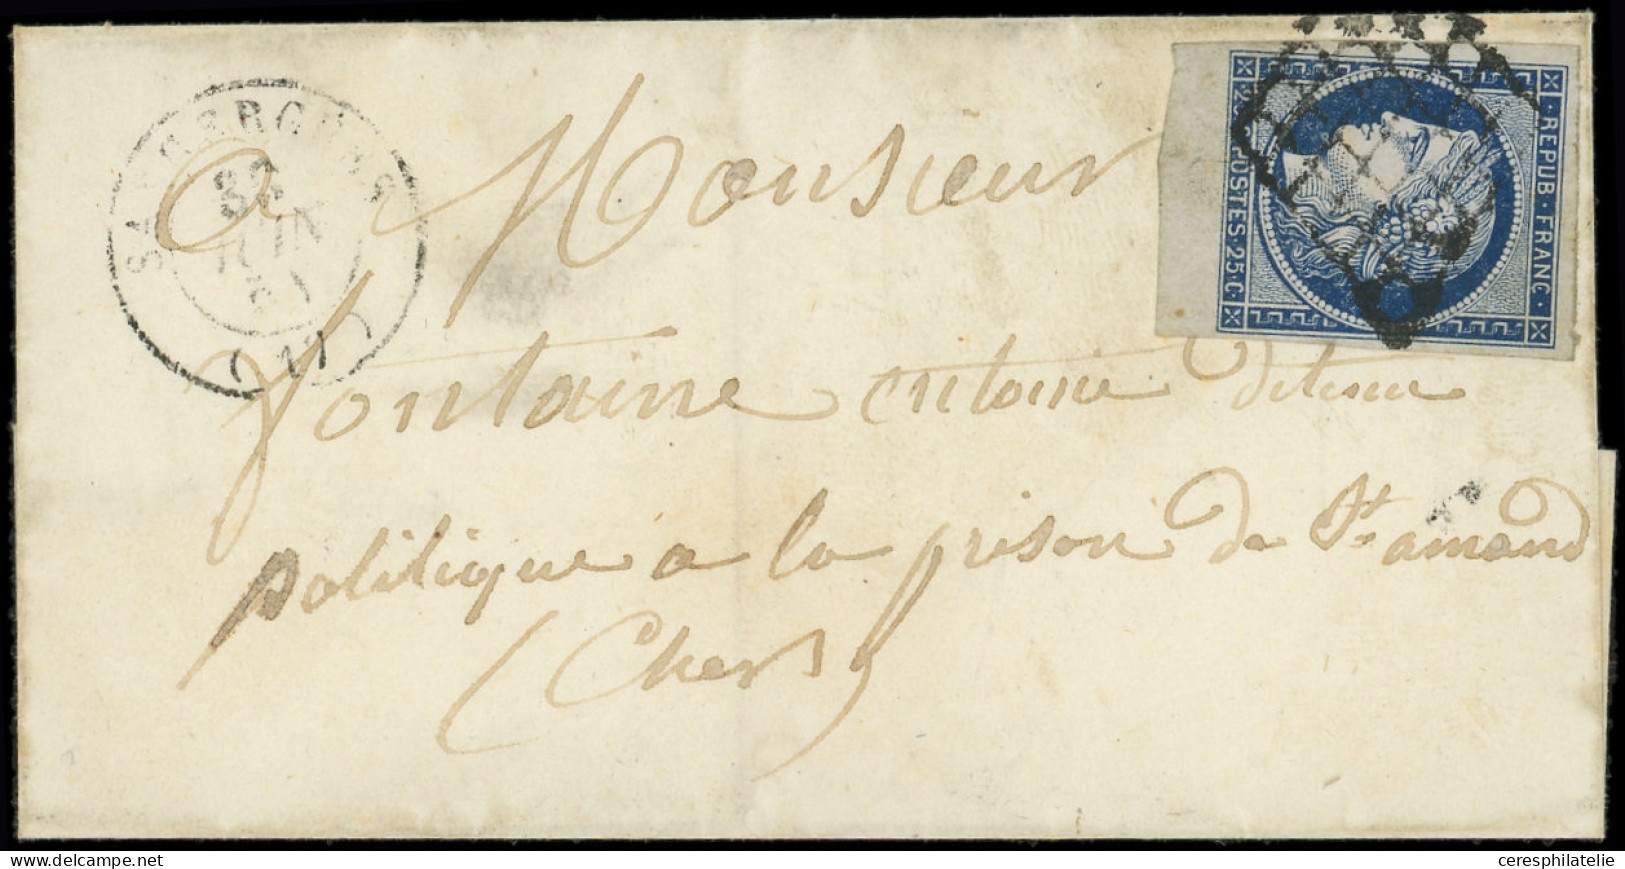 SANCERGUES
30
JUIN
51
(17)
REPUB · FRANC ·
2 POSTES · 25 · C ·
A Monsieur
Fontaine antoine detenu
politique a la prison de St amand
(Cher)
www.delcampe.net
ceresphilatelie